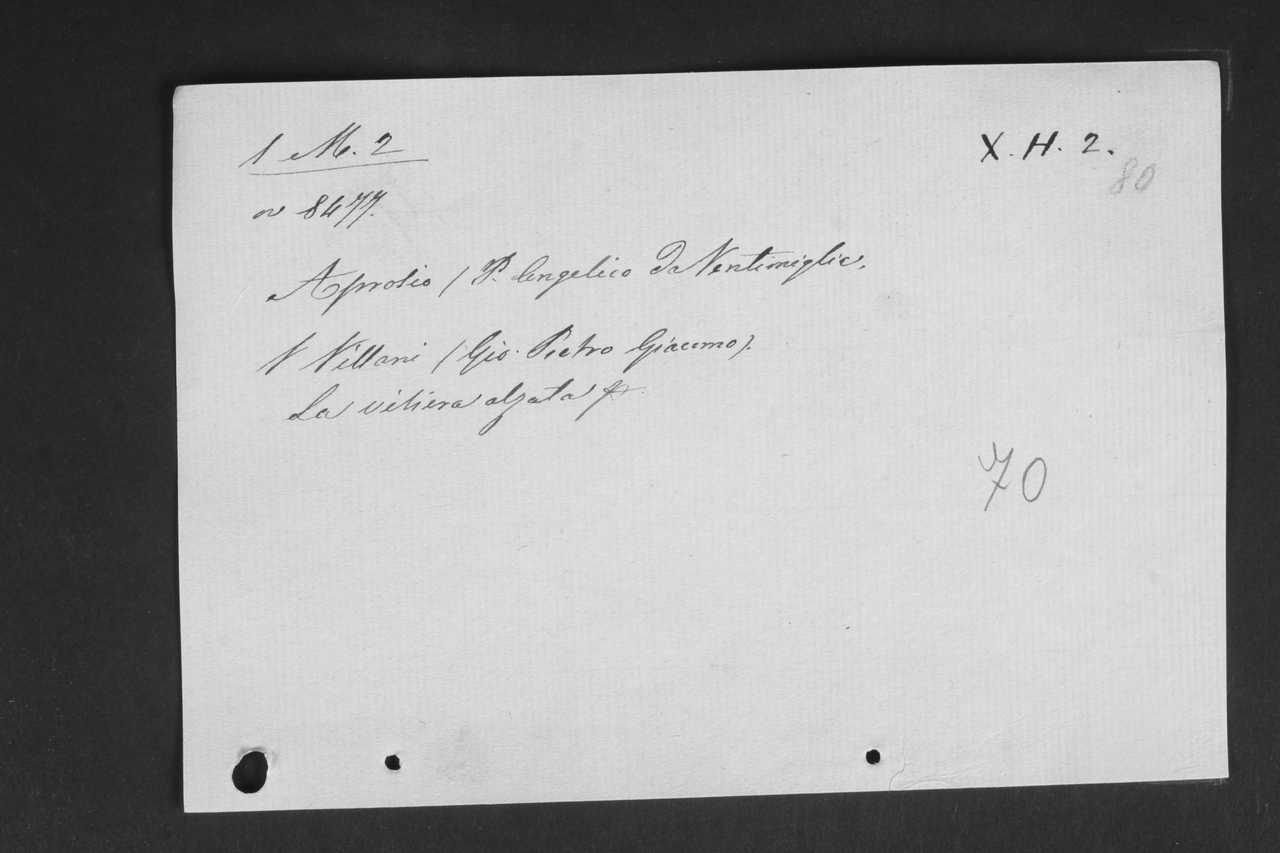 1 M. 2
X. H. 2.
80
n 8477.
Aprosio (P. Angelico Da Ventimiglia.
V Villani (Gio. Pietro Giacomo).
La visiera alzata
70